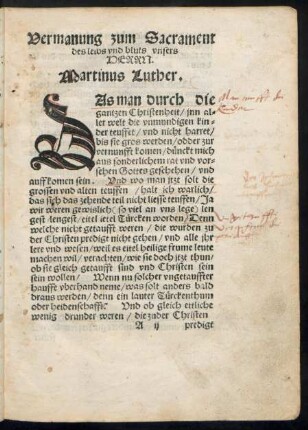 Vermanung zum Sacrament
des leibs vnd bluts vnsers
HERRN.
Martinus Luther.
DAs man durch die
gantzen Christenheit / jnn al
ler welt die vnmundigen kin
der teuffet / vnd nicht harret /
bis sie gros werden / odder zur
vernunfft komen / dünckt mich
aus sonderlichem rat vnd vor-
sehen Gottes geschehen / vnd
auffkomen sein. Vnd wo man itzt solt die
grossen vnd alten teuffen / halt ich warlich /
das sich das zehende teil nicht liesse teuffen / Ja
wir weren gewislich (so viel an vns lege) len
gest lengest / eitel Türcken worden / Denn
welche nicht getaufft weren / die wurden zu
der Christen predigt nicht gehen / vnd alle jhr
lere vnd wesen / weil es eitel heilige frume leute
machen wil / verachten / wie sie doch itzt thun /
ob sie gleich getaufft sind vnd Christen sein
sein wollen / Wenn nu solcher vngetaufft
hauffe vberhand neme / was solt anders bald
draus werden / denn ein lauter Türckenthum
odder heidenschafft. Vnd ob gleich ettliche
wenig drunder weren / die zuder Christen
A ij predigt